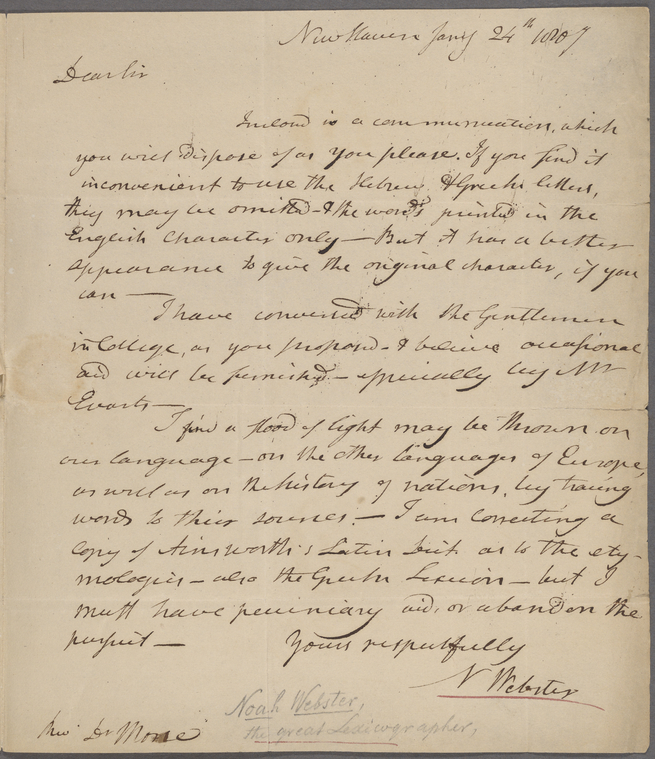 New Haven Jany 24th 1807
Dear Sir
Inclosed is a communication, which
you will dispose of as you please. If you find it
inconvenient to use the Hebrew & Greek letters,
they may be omitted & the words printed in the
English character only — But it has a better
appearance to give the original character, if you
can —
I have conversed with the Gentlemen
in College, as you proposed & believe occasional
aid will be furnished — especially by Mr
Evarts —
I find a flood of light may be thrown on
our language — on the other languages of Europe,
as well as on the history of nations, by tracing
words to their sources — I am correcting a
copy of Ainsworth's Latin Dict. as to the ety-
mologies — also the Greek Lexicon — but I
must have pecuniary aid, or abandon the
pursuit —
Yours respectfully
N Webster
Noah Webster,
the great Lexicographer,
Rev Dr Morse